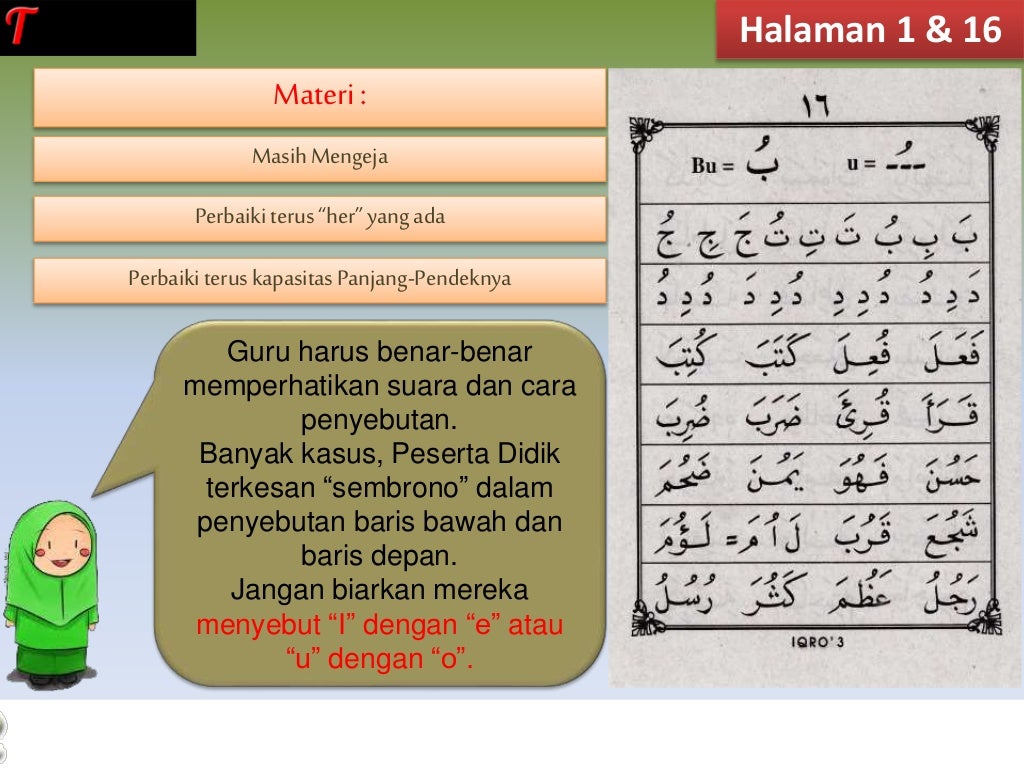 T
Halaman 1 & 16
Materi :
Masih Mengeja
Perbaiki terus “her” yang ada
Perbaiki terus kapasitas Panjang-Pendeknya
Guru harus benar-benar
memperhatikan suara dan cara
penyebutan.
Banyak kasus, Peserta Didik
terkesan “sembrono” dalam
penyebutan baris bawah dan
baris depan.
Jangan biarkan mereka
menyebut “I” dengan “e” atau
“u” dengan “o”.
١٦
Bu = بُ u = ـُ
بَ بِ بُ تَ تِ تُ جَ جِ جُ
دَ دِ دُ دُ دِ دِ دُ دِ دَ دُ دِ دُ
فَعَلَ فُعِلَ كَتَبَ كُتِبَ
قَرَأَ قُرِئَ ضَرَبَ ضُرِبَ
حَسُنَ فَهُوَ يَمُنَ ضَخُمَ
شَجُعَ قَرُبَ لَ اُ مَ = لَؤُمَ
رَجُلُ عَظُمَ كَثُرَ رُسُلُ
IQRO'3